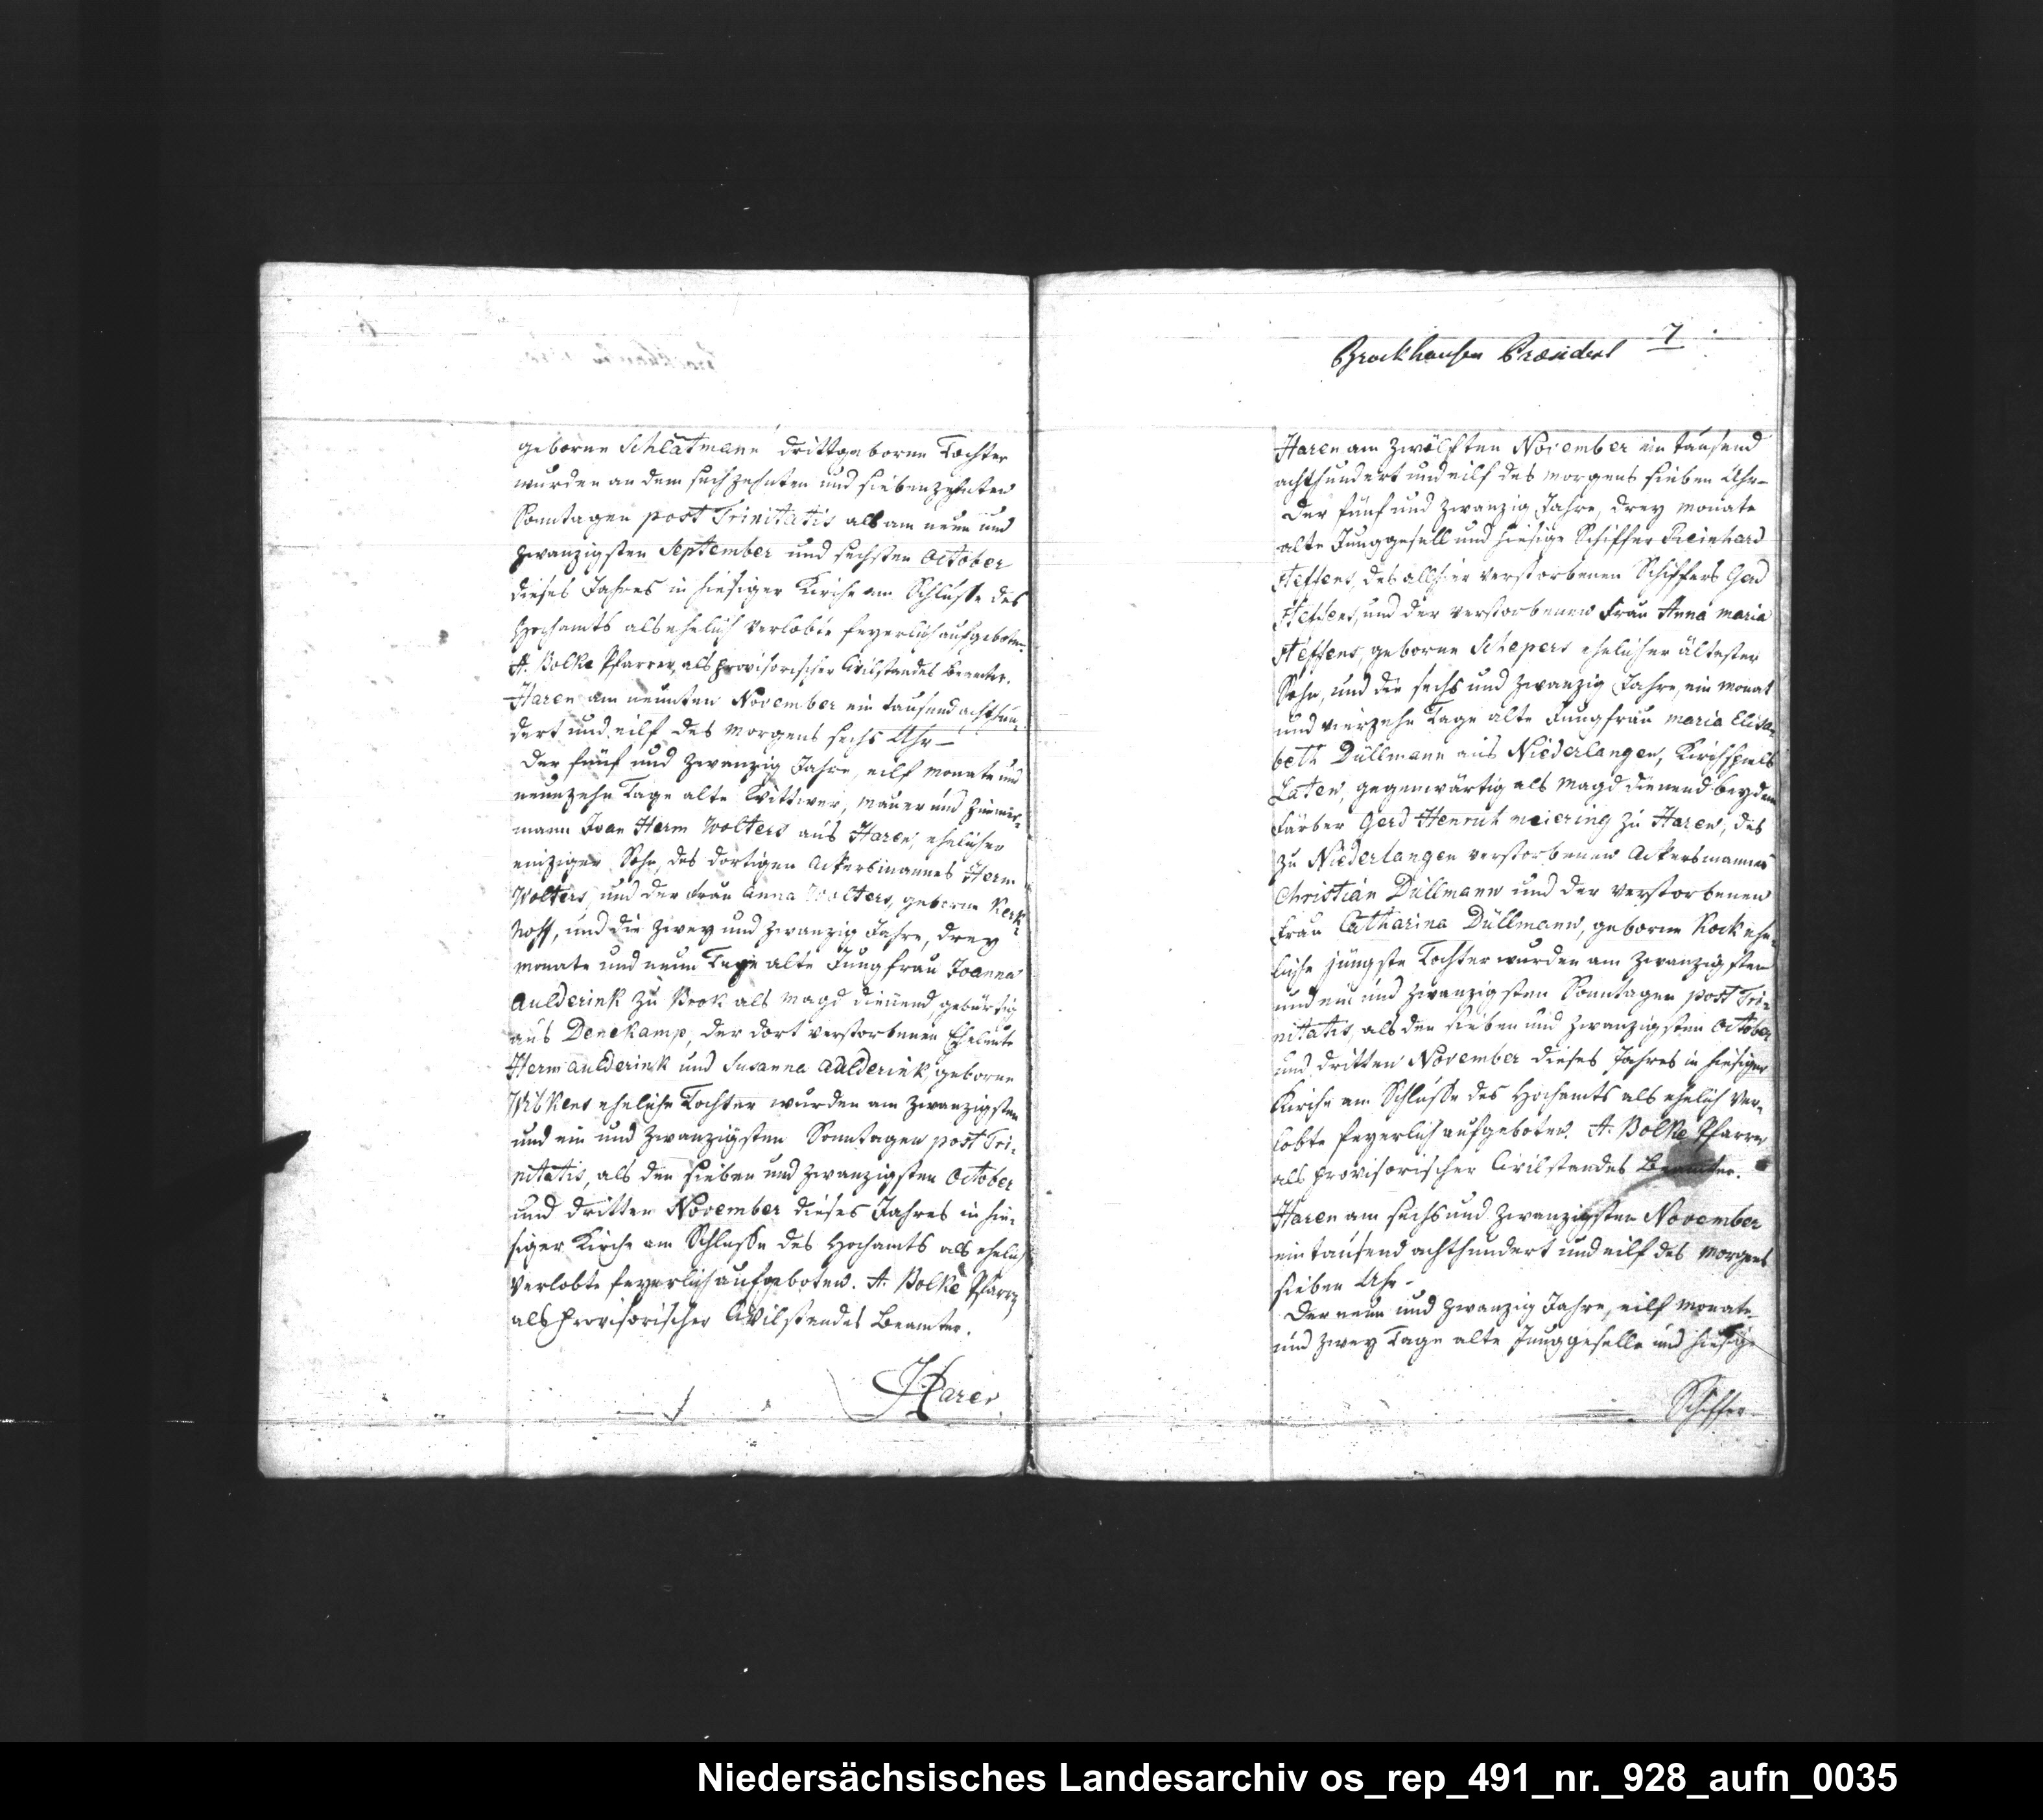 geborne Schlätmann drittgeborne Tochter
wurden an dem sechzehnten und siebenzehnten
Sonntagen post Trinitatis als am neun und
zwanzigsten September und sechsten October
dieses Jahres in hiesiger Kirche am Schlusse des
Hochamts als ehelich Verlobte feyerlich aufgeboten.
A. Bolke Pfarrer, als provisorischer Civilstandes Beamter.
Haren am neunten November ein tausend achthun-
dert und eilf des Morgens sechs Uhr –
Der fünf und zwanzig Jahre, eilf Monate und
neunzehn Tage alte Wittwer, Mauer und Zimmer-
mann Joan Herm Wolters aus Haren, ehelicher
einziger Sohn, des dortigen Ackersmannes Herm
Wolters, und der Frau Anna Wolters, geborne Kerk-
hoff, und die zwey und zwanzig Jahre, drey
Monate und neun Tage alte Jungfrau Joanna
Aulderink zu Brok als Magd dienend, gebürtig
aus Denekamp, der dort verstorbenen Eheleute
Herm Aulderink und Susanna Aulderink, geborne
Wibkens eheliche Tochter wurden am zwanzigsten
und ein und zwanzigsten Sonntagen post Tri-
nitatis, als den sieben und zwanzigsten October
und dritten November dieses Jahres in hie-
siger Kirche am Schlusse des Hochamts als ehelich
Verlobte feyerlich aufgeboten. A. Bolke Pfarrer
als provisorischer Civilstandes Beamter.
Haren
7
Brockhausen Præsident
Haren am zwölften November ein tausend
achthundert und eilf des Morgens sieben Uhr –
Der fünf und zwanzig Jahre, drey Monate
alte Junggesell und hiesige Schiffer Reinhard
Steffens, des allhier verstorbenen Schiffers Gerd
Steffens, und der verstorbenen Frau Anna Maria
Steffens, geborne Schepers ehelicher ältester
Sohn, und die sechs und zwanzig Jahre, ein Monat
und vierzehn Tage alte Jungfrau Maria Elisa-
beth Düllmann aus Niederlangen, Kirchspiels
Laten, gegenwärtig als Magd dienend bey dem
Färber Gerd Henrich Meiering zu Haren, des
zu Niederlangen verstorbenen Ackersmannes
Christian Düllmann und der verstorbenen
Frau Catharina Düllmann, geborne Kock ehe-
liche jüngste Tochter wurden am zwanzigsten
und ein und zwanzigsten Sonntagen post Tri-
nitatis, als den sieben und zwanzigsten October
und dritten November dieses Jahres in hiesiger
Kirche am Schlusse des Hochamts als ehelich Ver-
lobte feyerlich aufgeboten. A. Bolke Pfarrer
als provisorischer Civilstandes Beamter.
Haren am sechs und zwanzigsten November
ein tausend achthundert und eilf des Morgens
sieben Uhr –
Der neun und zwanzig Jahre, eilf Monate
und zwey Tage alte Junggeselle und hiesige
Schiffer
Niedersächsisches Landesarchiv os_rep_491_nr._928_aufn_0035